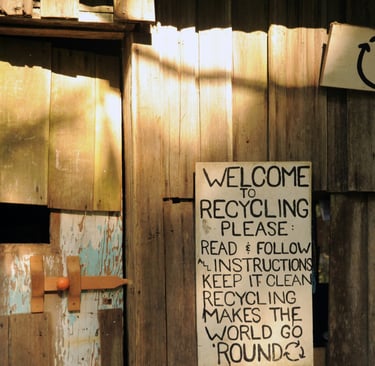 WELCOME
TO
RECYCLING
PLEASE:
READ & FOLLOW
ALL INSTRUCTIONS
KEEP IT CLEAN
RECYCLING
MAKES THE
WORLD GO
'ROUND